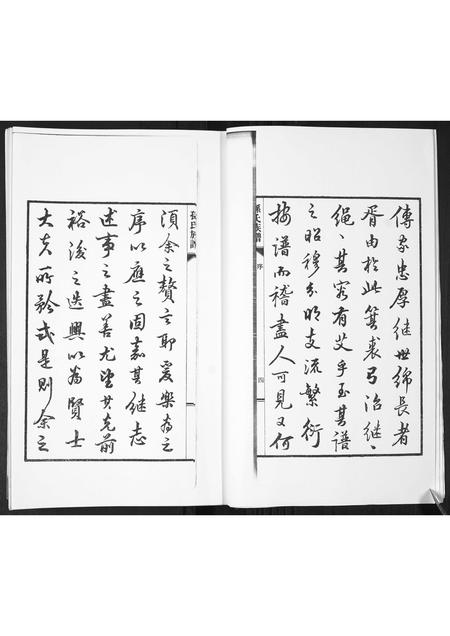 傳家忠厚继世綿長者
胥由於此箕裘弓冶继、
繩、其容有艾乎至其譜
之昭穆分明支流繁衍
按譜而稽盡人可見又何
孫氏族譜
序
四
孫氏族譜
須余之贅言耶爰樂為之
序以應之固嘉其继志
述事之盡善尤望其光前
裕後之迭興以為賢士
大夫所矜式是則余之